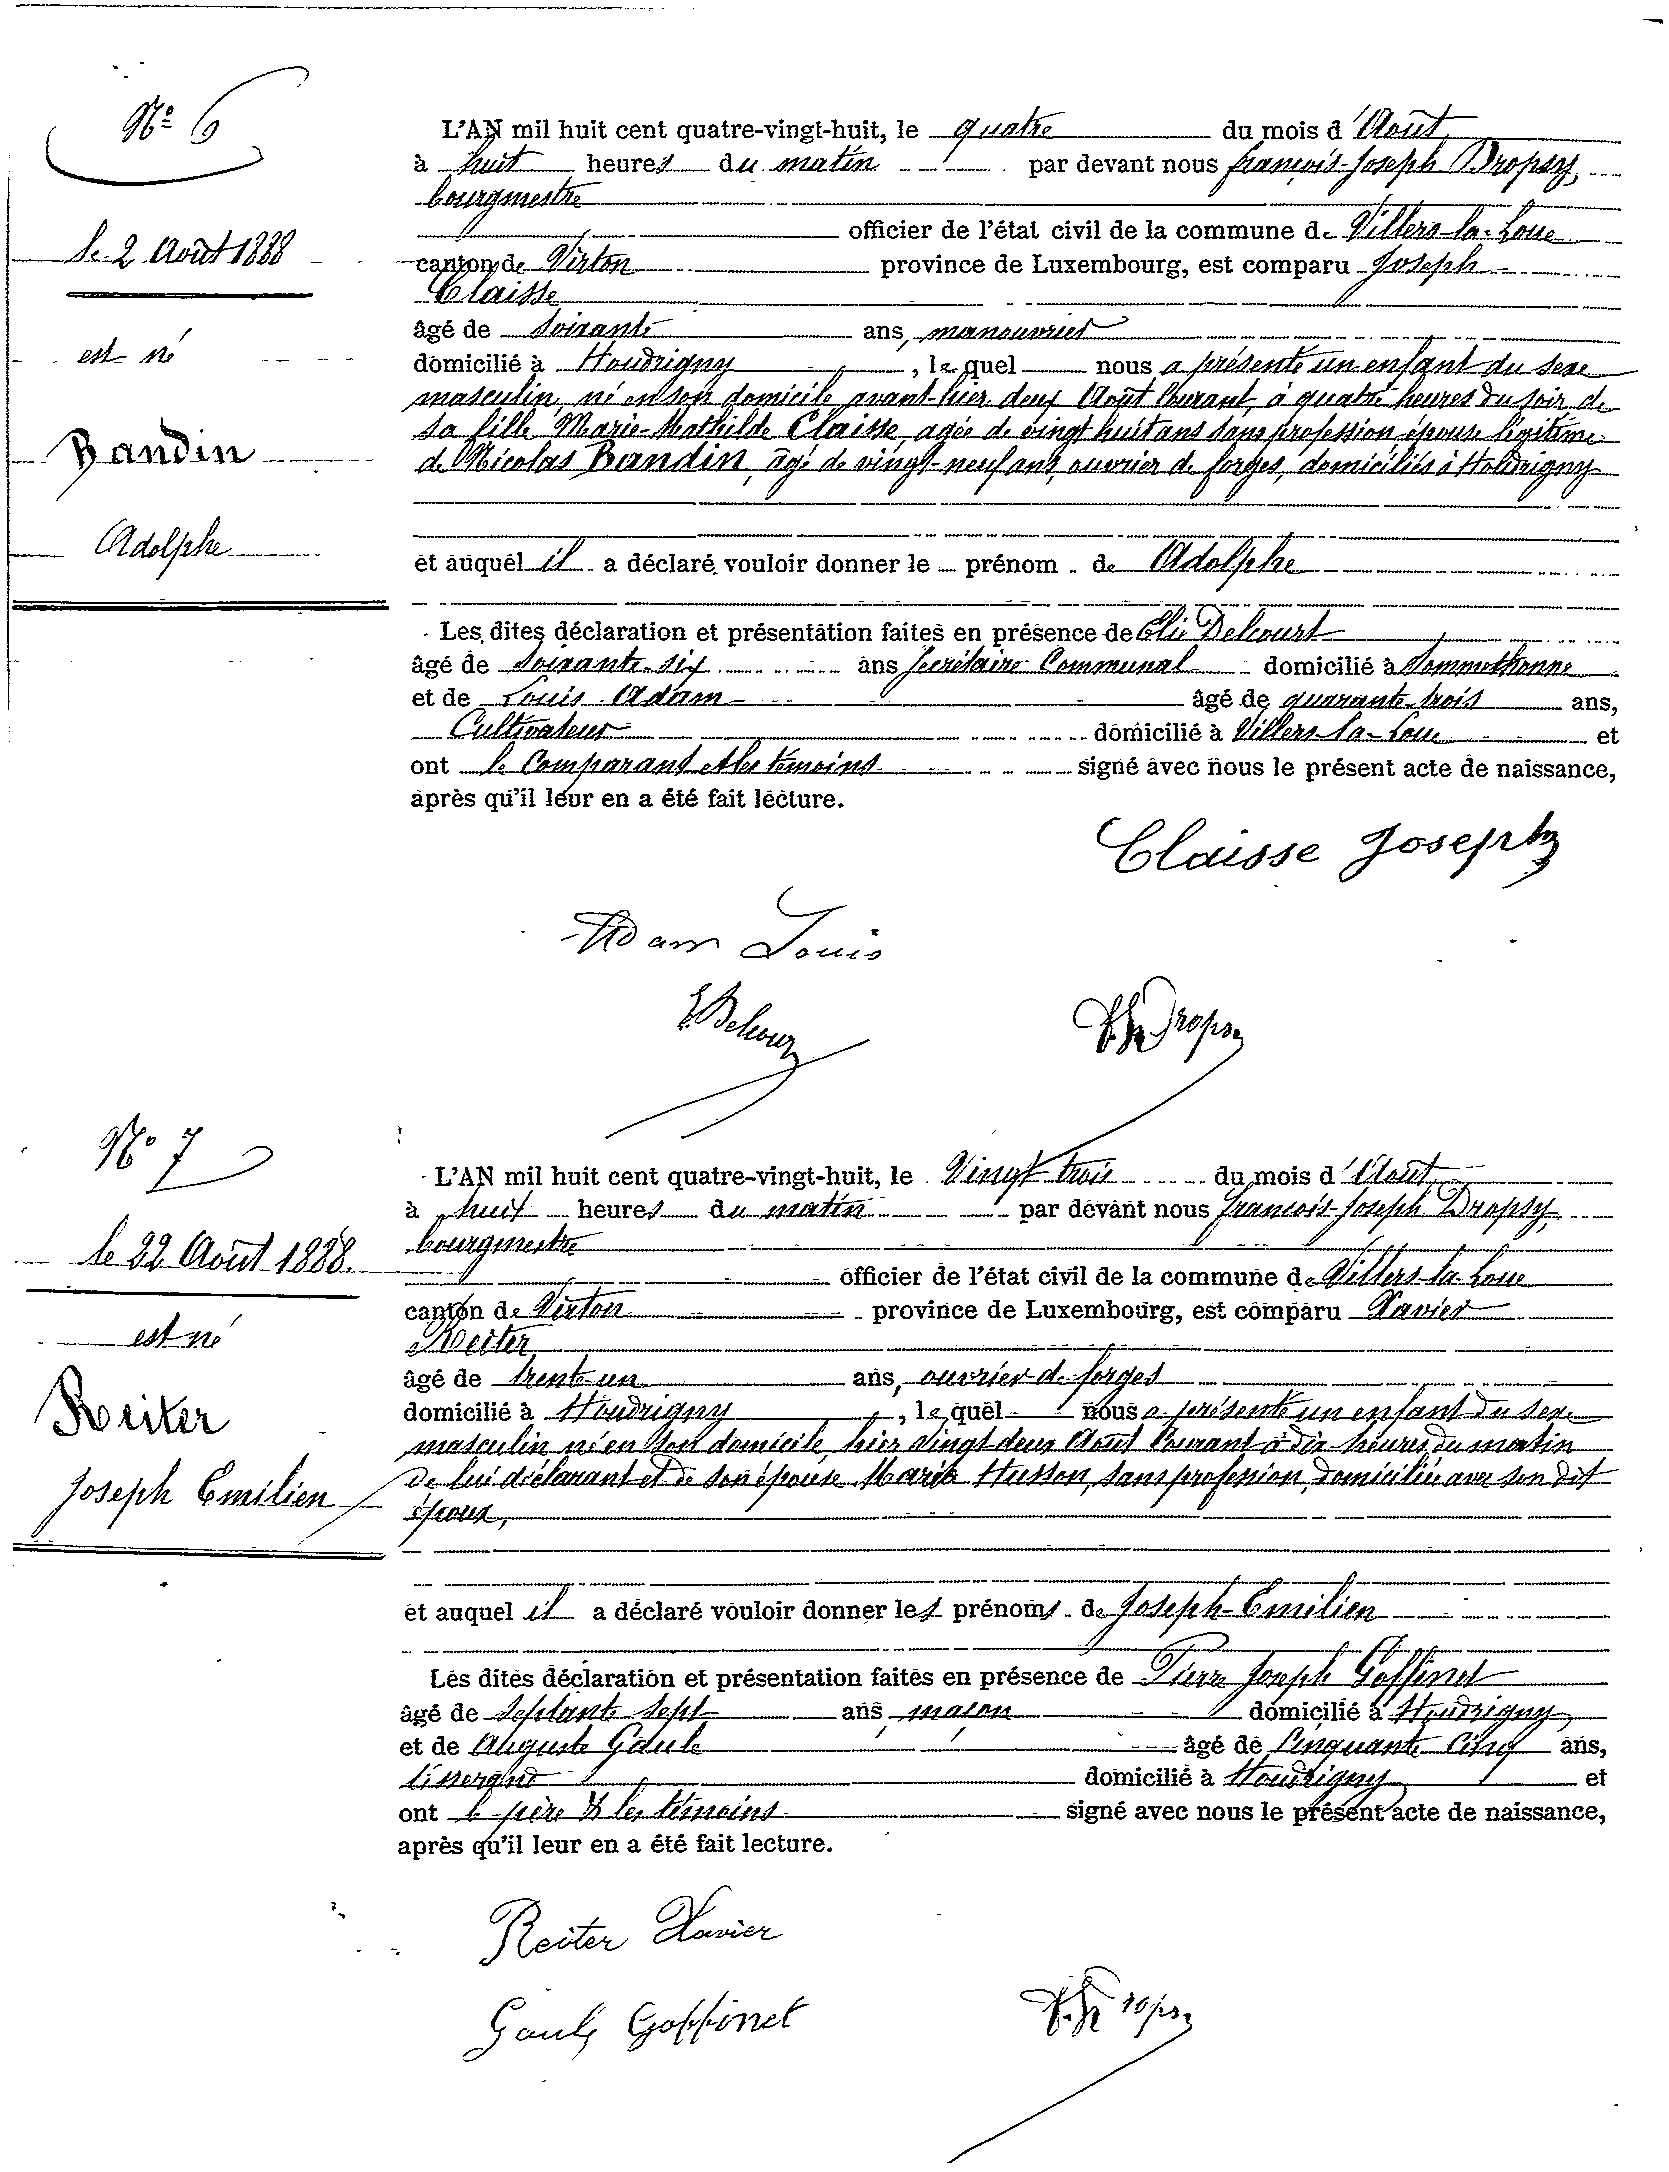 Nº 6
le 2 Août 1888
est né
Bandin
Adolphe
L'AN mil huit cent quatre-vingt-huit, le quatre du mois d'Août,
à huit heures du matin par devant nous françois-Joseph Dropsy,
bourgmestre
officier de l'état civil de la commune de Villers-la-Loue
canton de Virton province de Luxembourg, est comparu Joseph
Claisse
âgé de soixante ans, manouvrier
domicilié à Houdrigny, le quel nous a présenté un enfant du sexe
masculin, né en son domicile avant-hier deux Août Courant, à quatre heures du soir, de
sa fille Marie-Mathilde Claisse, agée de vingt huit ans sans profession épouse légitime
de Nicolas Bandin, âgé de vingt-neuf ans, ouvrier de forges, domiciliés à Houdrigny
et auquel il a déclaré vouloir donner le prénom de Adolphe
Les dites déclaration et présentation faites en présence de Elie Delcourt
âgé de soixante-six ans Secrétaire Communal domicilié à Sommethonne
et de Louis Adam âgé de quarante-trois ans,
Cultivateur domicilié à Villers-la-Loue et
ont le Comparant et les témoins signé avec nous le présent acte de naissance,
après qu'il leur en a été fait lecture.
Claisse Joseph
Adam Louis
E Delcour
F. J. Dropsy
Nº 7
le 22 Août 1888.
est né
Reiter
Joseph Emilien
L'AN mil huit cent quatre-vingt-huit, le Vingt trois du mois d'Août,
à huit heures du matin par devant nous francois-Joseph Dropsy,
bourgmestre
officier de l'état civil de la commune de Villers-la-Loue
canton de Virton province de Luxembourg, est comparu Xavier
Reiter
âgé de trente-un ans, ouvrier de forges
domicilié à Houdrigny, le quel nous a présenté un enfant du sexe
masculin né en son domicile, hier vingt-deux Août Courant à dix heures du matin
de lui déclarant et de son épouse Maria Husson, sans profession, domiciliée avec son dit
époux,
et auquel il a déclaré vouloir donner les prénoms de Joseph-Emilien
Les dites déclaration et présentation faites en présence de Pierre Joseph Goffinet
âgé de septante sept ans, maçon domicilié à Houdrigny,
et de Auguste Gaule âgé de Cinquante Cinq ans,
tisserand domicilié à Houdrigny et
ont le père & les témoins signé avec nous le présent acte de naissance,
après qu'il leur en a été fait lecture.
Reiter Xavier
Gaule Goffinet
F. J. Dropsy